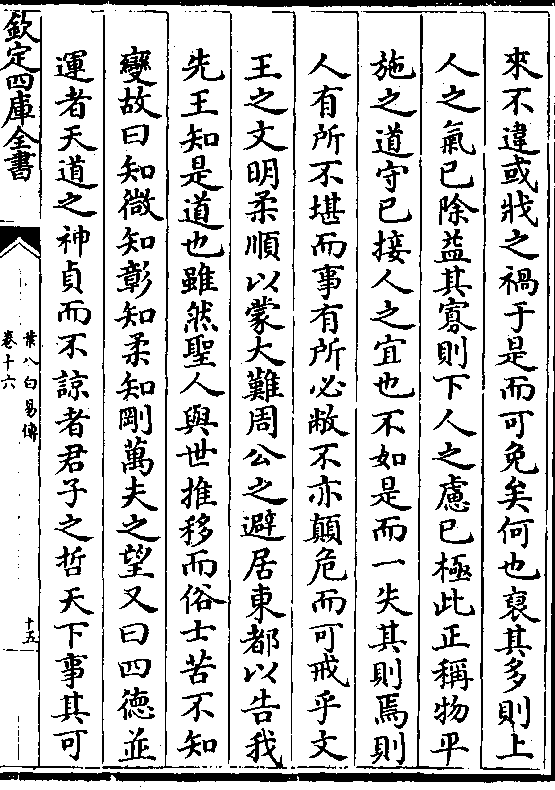 來不違或戕之禍于是而可免矣何也裒其多則上
人之氣已除益其寡則下人之慮已極此正稱物平
施之道守已接人之宜也不如是而一失其則焉則
人有所不堪而事有所必敝不亦顛危而可戒乎文
王之文明柔順以蒙大難周公之避居東都以告我
先王知是道也雖然聖人與世推移而俗士苦不知
變故曰知微知彰知柔知剛萬夫之望又曰四德並
運者天道之神貞而不諒者君子之哲天下事其可
欽定四庫全書
葉八白易傳
卷十六
十五